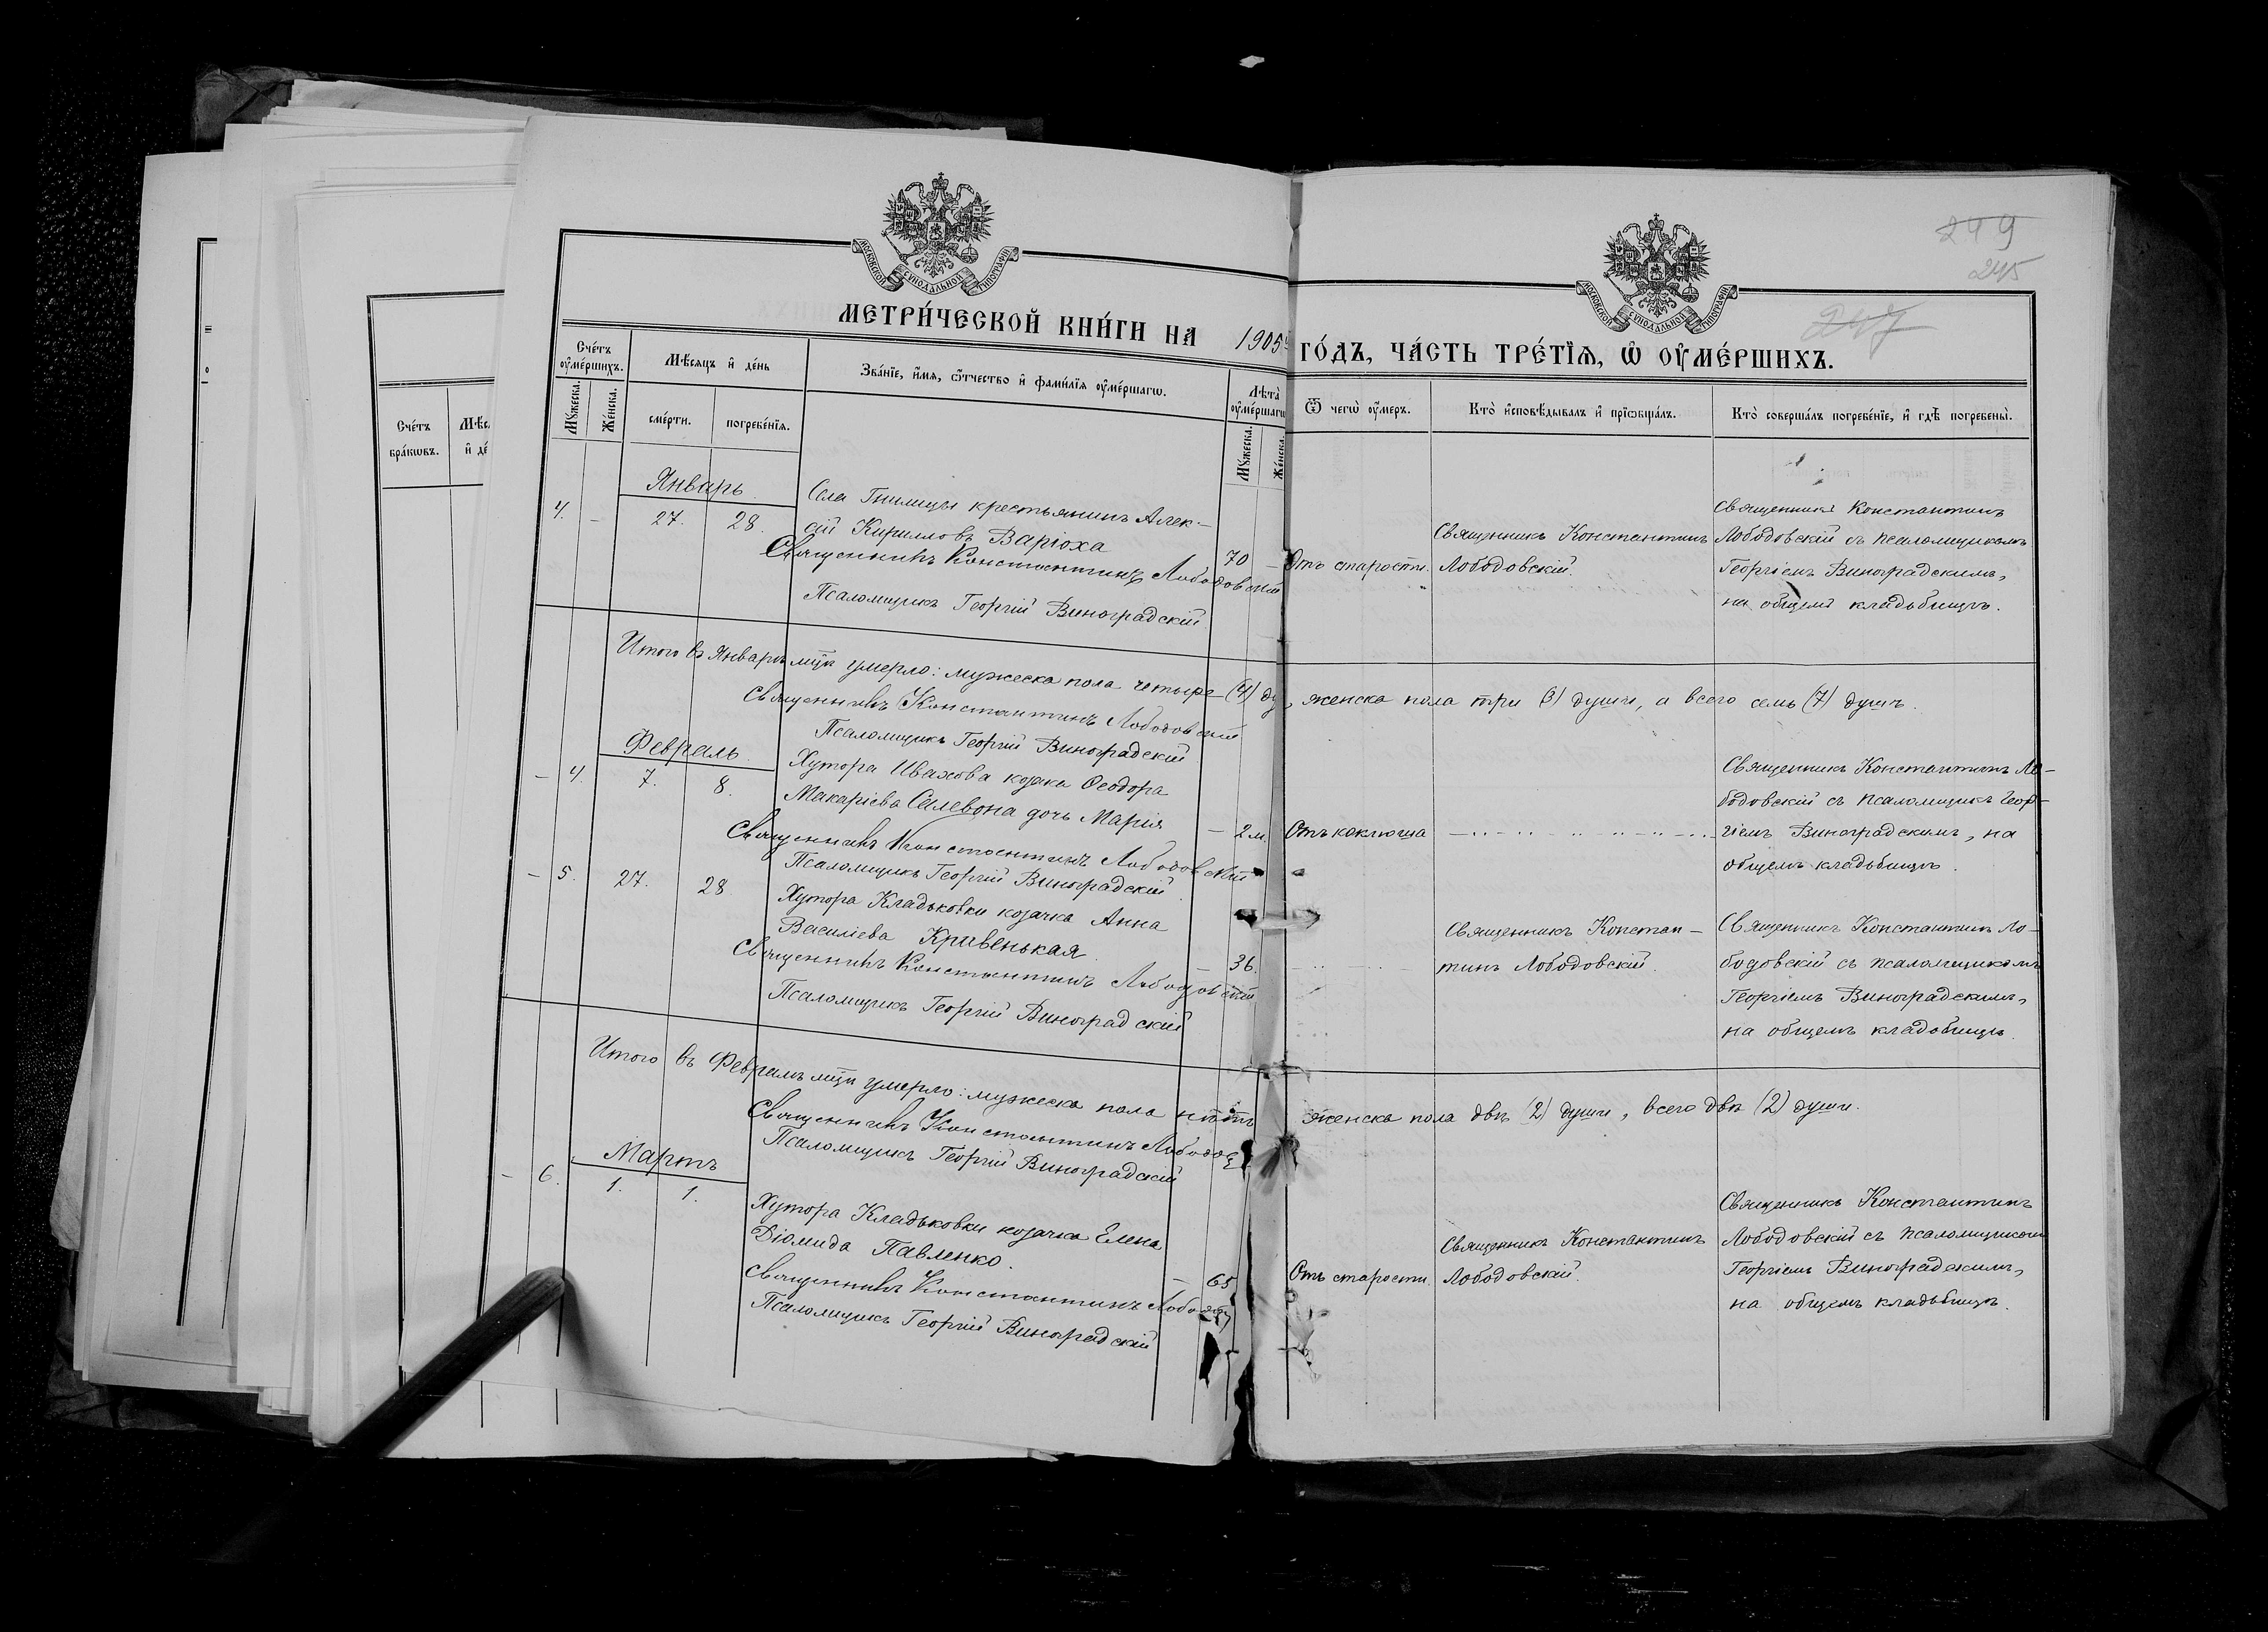 249
245
247
МОСКОВСКОЙ СѴНОДАЛЬНОЙ ТИПОГРАФІИ
МОСКОВСКОЙ СѴНОДАЛЬНОЙ ТИПОГРАФІИ
МЕТРИ́ЧЕСКОЙ КНИ́ГИ НА 1905й
ГО́ДЪ, ЧА́СТЬ ТРЕ́ТІѦ, Ѡ҆ ОУ҆МЕ́РШИХЪ.
Сче́тъ
бра́кѡвъ.
Сче́тъ оу҆ме́ршихъ.
Мꙋ́жеска.
Же́нска.
Мѣ́сѧцъ и҆ де́нь
сме́рти.
погребе́нїѧ.
Зва́нїе, и҆́мѧ, ѻ҆́тчество и҆ фами́лїѧ оу҆ме́ршагѡ.
Лѣ́та оу҆ме́ршагѡ
Мꙋ́жеска.
Же́нска.
Ѿ чегѡ̀ оу҆́меръ.
Кто̀ и҆сповѣ́дывалъ и҆ прїѡбща́лъ.
Кто̀ соверша́лъ погребе́нїе, и҆ гдѣ̀ погребены̀.
Январь
4. – 27. 28.
Села Гнилицы крестьянинъ Алек-
сій Кирилловъ Варюха
70 –
Священникъ Константинъ Лободовскій
Псаломщикъ Георгій Виноградскій
Отъ старости.
Священникъ Константинъ
Лободовскій.
Священникъ Константинъ
Лободовскій съ псаломщикомъ
Георгіемъ Виноградскимъ,
на общемъ кладьбищѣ.
Итого въ Январѣ мцѣ умерло: мужеска пола четыре (4) ду, женска пола три (3) души, а всего семь (7) душъ.
Священникъ Константинъ Лободовскій
Псаломщикъ Георгій Виноградскій
Февраль
– 4. 7. 8.
Хутора Ивахова козака Ѳеодора
Макаріева Силевона дочь Марія
– 2м.
Священникъ Константинъ Лободовскій
Псаломщикъ Георгій Виноградскій
Отъ коклюша
Священникъ Константинъ Ло-
бодовскій съ псаломщикъ Геор-
гіемъ Виноградскимъ, на
общемъ кладьбищѣ.
– 5. 27. 28
Хутора Кладьковки козачка Анна
Василіева Кривенькая.
– 36.
Священникъ Константинъ Лободовскій
Псаломщикъ Георгій Виноградскій
Священникъ Констан-
тинъ Лободовскій.
Священникъ Константинъ Ло-
бодовскій съ псаломщикомъ
Георгіемъ Виноградскимъ,
на общемъ кладьбищѣ.
Итого въ Февралѣ мцѣ умерло: мужеска пола нѣтъ женска пола двѣ (2) души, всего двѣ (2) души.
Священникъ Константинъ Лободо
Псаломщикъ Георгій Виноградскій
Мартъ
– 6. 1. 1.
Хутора Кладьковки козачка Елена
Діомида Павленко.
– 65
Священникъ Константинъ Лободо
Псаломщикъ Георгій Виноградскій
Отъ старости.
Священникъ Константинъ
Лободовскій.
Священникъ Константинъ
Лободовскій съ псаломщикомъ
Георгіемъ Виноградскимъ,
на общемъ кладьбищѣ.